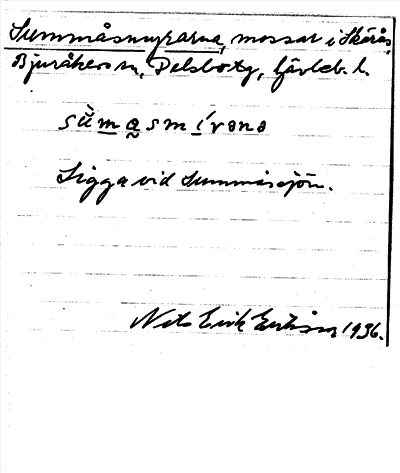 Summåsmyrarna, mossar i Skärås,
Bjuråkers sn, Delsbo tg, Gävleb. l.
sùmasmívənə
Ligga vid Summåssjön.
Nils Erik Eriksson 1936.